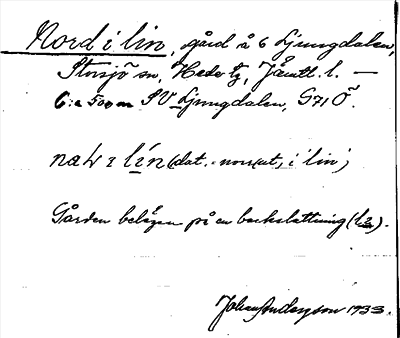 Nord i lin, gård å 6 Ljungdalen,
Storsjö sn, Hede tg, Jämtl. l. —
C:a 500 m SV Ljungdalen, G71 Ö.
i lín (dat. nou(ut) i lin)
Gården belägen på en backslåttning (lį).
Johan Anderzson 1933.